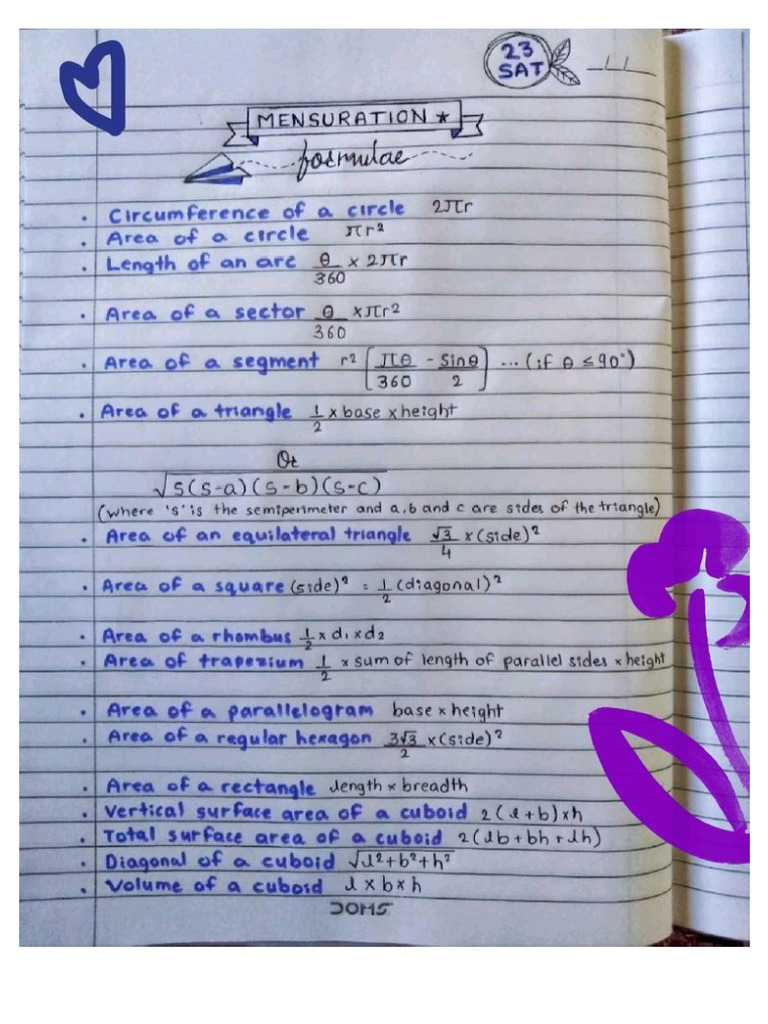 23
SAT
MENSURATION ★
formulae
• Circumference of a circle 2πr
• Area of a circle πr²
• Length of an arc θ/360 × 2πr
• Area of a sector θ/360 × πr²
• Area of a segment r² [πθ/360 - sinθ/2] ... (if θ ≤ 90°)
• Area of a triangle 1/2 × base × height
Or
√s(s-a)(s-b)(s-c)
(where 's' is the semiperimeter and a, b and c are sides of the triangle)
• Area of an equilateral triangle √3/4 × (side)²
• Area of a square (side)² = 1/2 (diagonal)²
• Area of a rhombus 1/2 × d₁ × d₂
• Area of trapezium 1/2 × sum of length of parallel sides × height
• Area of a parallelogram base × height
• Area of a regular hexagon 3√3/2 × (side)²
• Area of a rectangle length × breadth
• Vertical surface area of a cuboid 2(l+b)×h
• Total surface area of a cuboid 2(lb+bh+lh)
• Diagonal of a cuboid √l²+b²+h²
• Volume of a cuboid l × b × h
DOMS